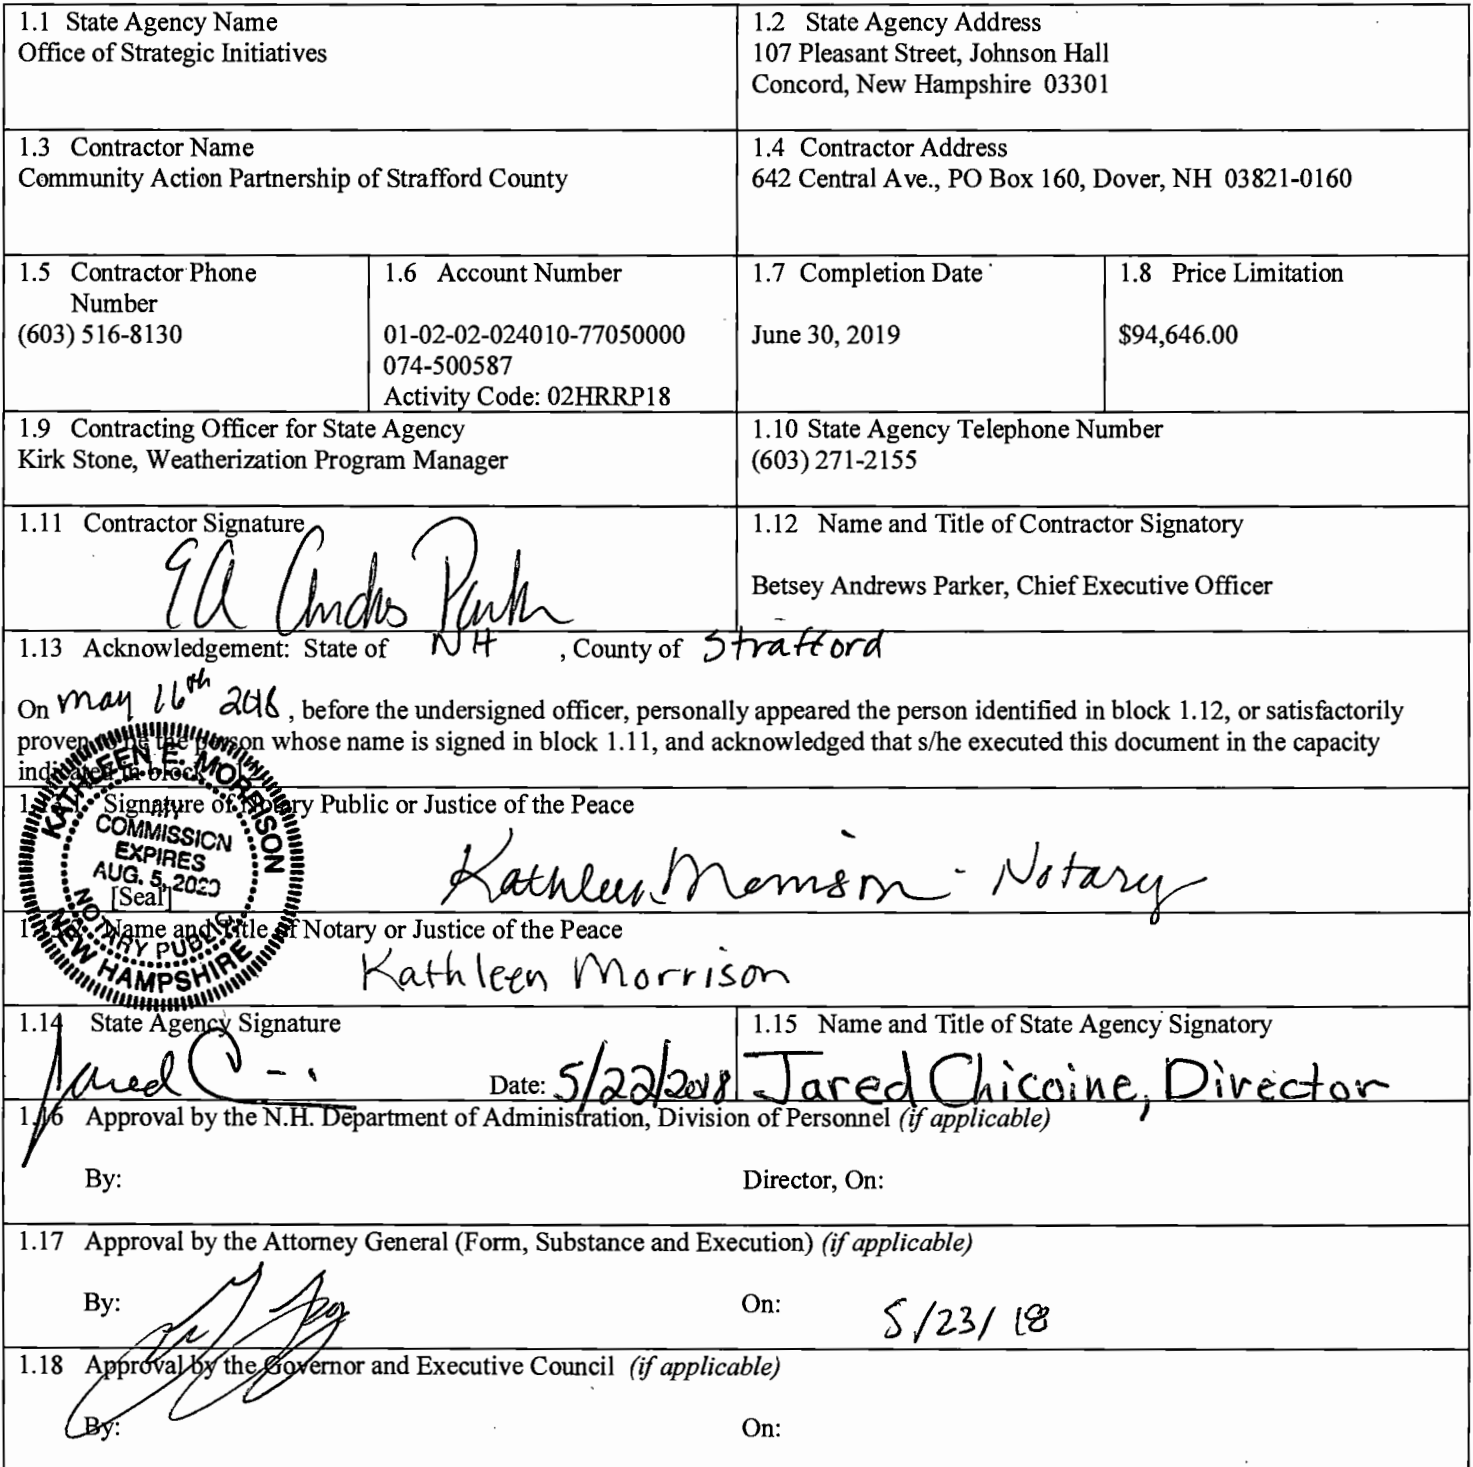 1.1 State Agency Name
Office of Strategic Initiatives
1.2 State Agency Address
107 Pleasant Street, Johnson Hall
Concord, New Hampshire 03301
1.3 Contractor Name
Community Action Partnership of Strafford County
1.4 Contractor Address
642 Central Ave., PO Box 160, Dover, NH 03821-0160
1.5 Contractor Phone
Number
(603) 516-8130
1.6 Account Number
01-02-02-024010-77050000
074-500587
Activity Code: 02HRRP18
1.7 Completion Date
June 30, 2019
1.8 Price Limitation
$94,646.00
1.9 Contracting Officer for State Agency
Kirk Stone, Weatherization Program Manager
1.10 State Agency Telephone Number
(603) 271-2155
1.11 Contractor Signature
EA Andrews Parker
1.12 Name and Title of Contractor Signatory
Betsey Andrews Parker, Chief Executive Officer
1.13 Acknowledgement: State of NH , County of Strafford
On May 16th 2018 , before the undersigned officer, personally appeared the person identified in block 1.12, or satisfactorily
proven to be the person whose name is signed in block 1.11, and acknowledged that s/he executed this document in the capacity
indicated in block
Signature of Notary Public or Justice of the Peace
KATHLEEN E. MORRISON
MY
COMMISSION
EXPIRES
AUG. 5, 2020
[Seal]
NOTARY PUBLIC
NEW HAMPSHIRE
Kathleen Morrison - Notary
Name and Title of Notary or Justice of the Peace
Kathleen Morrison
1.14 State Agency Signature
Jared Date: 5/22/2018
1.15 Name and Title of State Agency Signatory
Jared Chicoine, Director
1.16 Approval by the N.H. Department of Administration, Division of Personnel (if applicable)
By: Director, On:
1.17 Approval by the Attorney General (Form, Substance and Execution) (if applicable)
By: On: 5/23/18
1.18 Approval by the Governor and Executive Council (if applicable)
By: On: